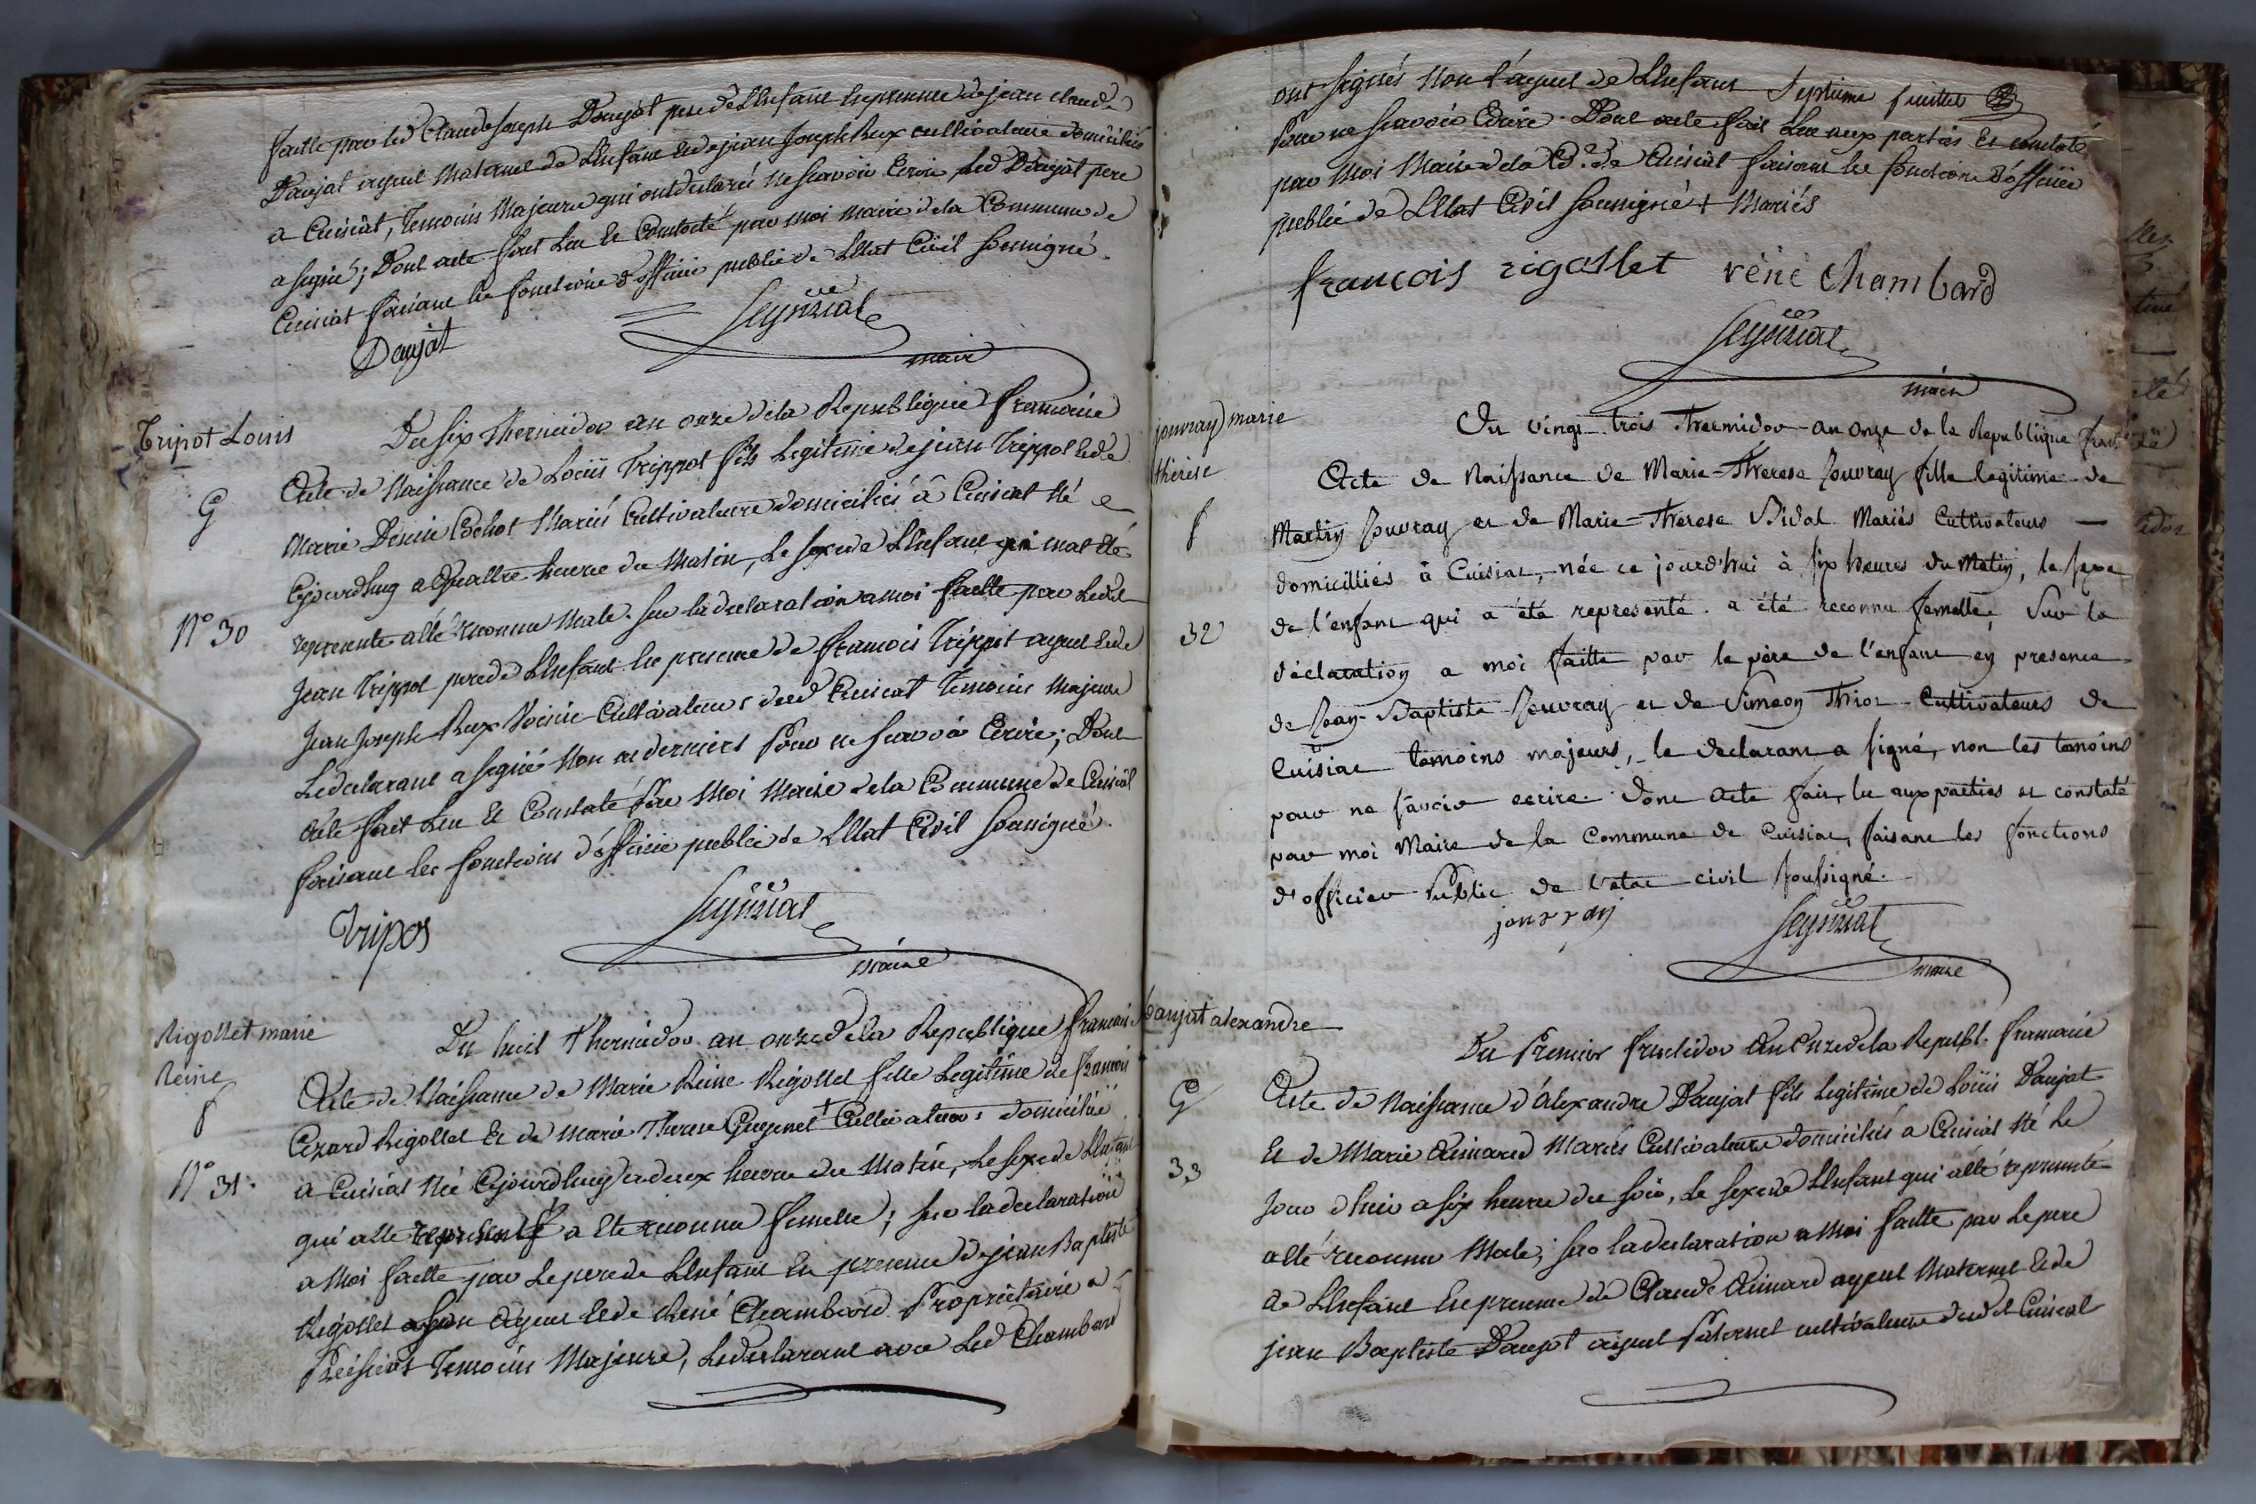 faitte par led Claude Joseph Daujat pere de L'Enfant En presence de jean claude
Daujat ayeul Maternel de L'Enfant Et de jean Joseph Rux cultivateurs domiciliés
a Cuisiat, Temoins Majeurs qui ont declarés ne scavoir Ecrire, led Daujat pere
a signé; Dont acte fait Lu Et Constaté par moi maire de la Commune de
Cuisiat faisant les fonctions d'officier public de L'Etat Civil soussigné.
Daujat
maire
Tripot Louis
G
N° 30
Du six thermidor an onze de la Republique francaise
Acte de Naissance de Louis Trippot fils Legitime de jean Trippot Et de
Marie Denise Bochot Mariés Cultivateurs domiciliés à Cuisiat né
Cejourdhuy a Quattre heures du Matin, Le sexe de L'Enfant qui m'at été
representé atté reconnu Male. sur la declaration a moi faitte par Ledit
Jean Trippot pere de L'Enfant En presence de francois Trippot ayeul Et de
Jean Joseph Rux Voisin Cultivateurs dud Cuisiat Temoins Majeurs
Le declarant a signé Non ces derniers pour ne scavoir Ecrire; Dont
Acte fait Lu Et Constaté par Moi Maire de la Commune de Cuisiat
faisant les fonctions d'officier public de L'Etat Civil soussigné.
Tripos
maire
Rigollet marie
Reine
f
N° 31.
Du huit thermidor an onze de la Republique francaise
Acte de Naissance de Marie Reine Rigollet fille Legitime de francois
Cezard Rigollet Et de Marie Therese Guyenet + Cultivateurs domiciliés
a Cuisiat Née Cejourdhuy a deux heures du Matin, Le sexe de L'Enfant
qui atté representé a été reconnu femelle; sur la declaration
a Moi faitte par Le pere de L'Enfant En presence de jean Baptiste
Rigollet son ayeul Et de René Chambard Proprietaire a
Temoins Majeurs, Le declarant avec Led Chambard
ont signés Non l'ayeul de L'Enfant Septieme feuillet
pour ne scavoir Ecrire. Dont acte fait Lu aux parties Et constaté
par Moi Maire de la C.ne de Cuisiat faisant les fonctions d'officier
public de L'Etat Civil soussigné + Mariés
francois rigollet réné Chambard
maire
jouvray marie
thérèse
f
32
Du vingt-trois Thermidor an onze de la Republique francaise
Acte de Naissance de Marie-Therese Jouvray fille legitime de
Martin Jouvray et de Marie-Therese Vidal Mariés Cultivateurs —
domicilliés à Cuisiat, née ce jourd'hui à six heures du Matin, le sexe
de l'enfant qui a été representé a été reconnu femelle, Sur la
déclaration a moi faitte par le père de l'enfant en presence
de Jean-Baptiste Jouvray et de Simeon Thios Cultivateurs de
Cuisiat temoins majeurs, le declarant a signé, non les temoins
pour ne savoir ecrire. Dont Acte fait, lu aux parties et constaté
par moi Maire de la Commune de Cuisiat, faisant les fonctions
d'officier Public de l'etat civil soussigné.
jouvray
maire
daujat alexandre
G
33
Du Premier fructidor An Onze de la Republ. francaise
Acte de Naissance d'Alexandre Daujat fils Legitime de Louis Daujat
Et de Marie Aimard Mariés Cultivateurs domiciliés a Cuisiat Né Le
Jour d'hui a six heures du soir, Le sexe de L'Enfant qui atté representé
atté reconnu Male; sur la declaration a Moi faitte par Le pere
de L'Enfant En presence de Claude Aimard ayeul Maternel Et de
jean Baptiste Daujat aieul Paternel cultivateurs dudit Cuisiat